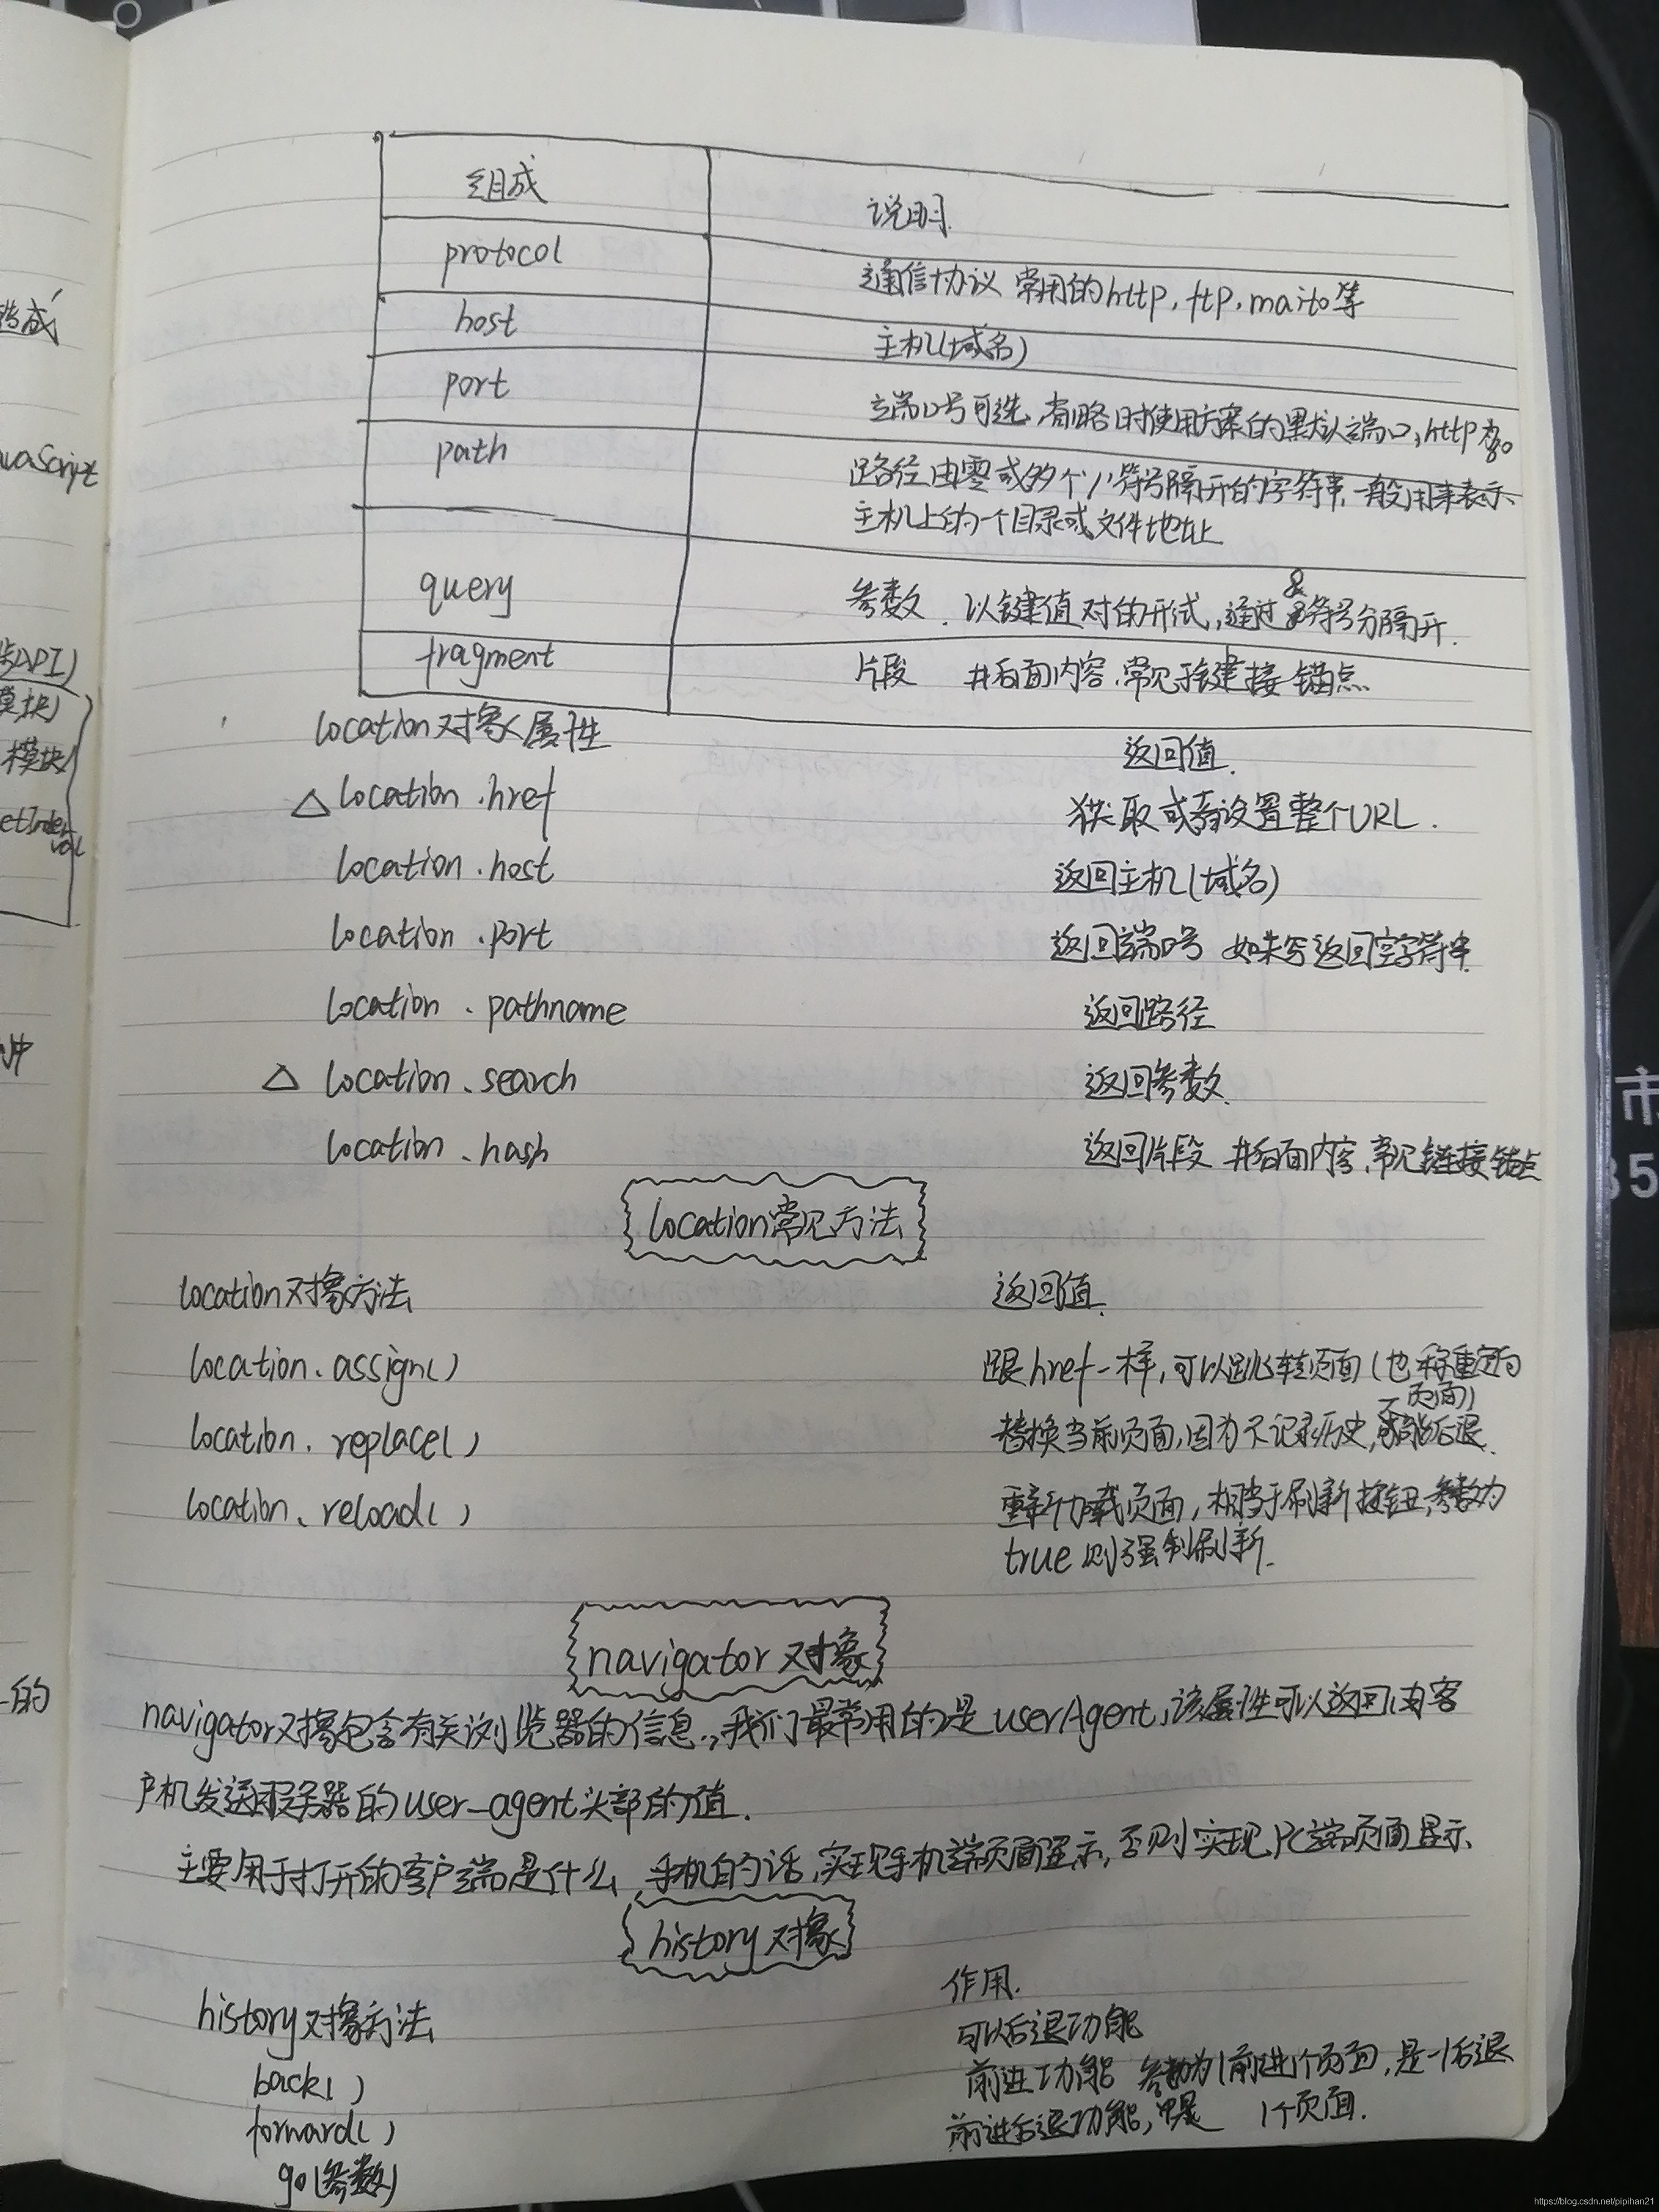 组成 说明
protocol 通信协议 常用的http,ftp,maito等
host 主机(域名)
port 端口号可选,省略时使用方案的默认端口,http为80
path 路径由零或多个'/'符号隔开的字符串,一般用来表示
主机上的一个目录或文件地址
query 参数.以键值对的形式,通过&符号分隔开.
fragment 片段 #后面内容,常见于链接 锚点
location对象属性 返回值.
△location.href 获取或者设置整个URL.
location.host 返回主机(域名)
location.port 返回端口号 如未写返回空字符串
location.pathname 返回路径
△ location.search 返回参数.
location.hash 返回片段 #后面内容,常见链接锚点
location常见方法
location对象方法 返回值.
location.assign() 跟href一样,可以跳转页面(也称重定向
页面)
location.replace() 替换当前页面,因为不记录历史,不能后退.
location.reload() 重新加载页面,相当于刷新按钮,参数为
true则强制刷新.
navigator对象
navigator对象包含有关浏览器的信息.,我们最常用的是userAgent,该属性可以返回由客
户机发送服务器的user-agent头部的值.
主要用于打开的客户端是什么,手机的话,实现手机端页面显示,否则实现PC端页面显示
history对象
history对象方法 作用.
back() 可以后退功能
forward() 前进功能 参数为1前进1个页面,是-1后退
go(参数) 前进后退功能, 1个页面.
造成
JavaScript
API)
模块)
模块)
的
市
85
https://blog.csdn.net/pipihan21